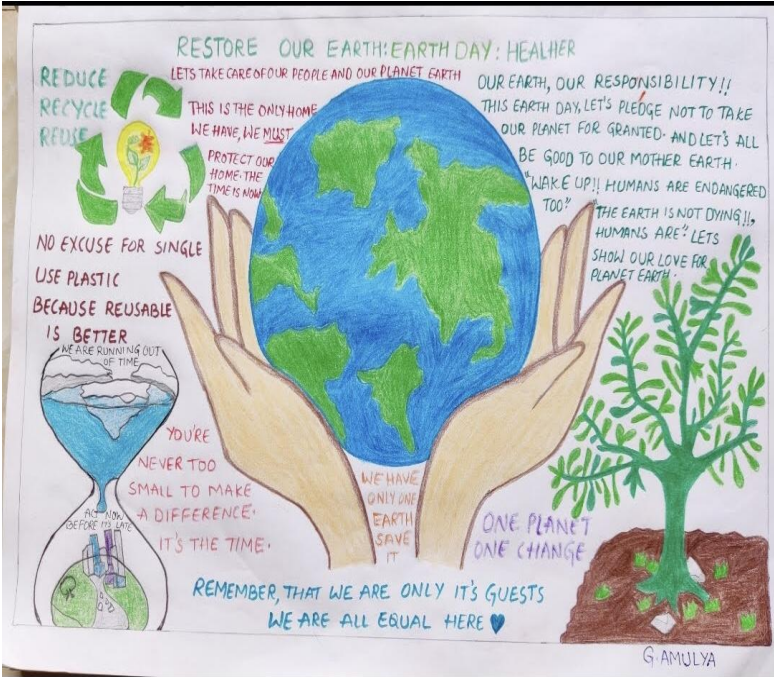 RESTORE OUR EARTH: EARTH DAY: HEALHER
LETS TAKE CARE OF OUR PEOPLE AND OUR PLANET EARTH
REDUCE
RECYCLE
REUSE
THIS IS THE ONLY HOME
WE HAVE, WE MUST
PROTECT OUR
HOME. THE
TIME IS NOW
OUR EARTH, OUR RESPONSIBILITY!!
THIS EARTH DAY, LET'S PLEDGE NOT TO TAKE
OUR PLANET FOR GRANTED. AND LET'S ALL
BE GOOD TO OUR MOTHER EARTH.
"WAKE UP!! HUMANS ARE ENDANGERED
TOO"
"THE EARTH IS NOT DYING!!,
HUMANS ARE" LETS
SHOW OUR LOVE FOR
PLANET EARTH.
NO EXCUSE FOR SINGLE
USE PLASTIC
BECAUSE REUSABLE
IS BETTER
WE ARE RUNNING OUT
OF TIME
ACT NOW
BEFORE IT'S LATE
YOU'RE
NEVER TOO
SMALL TO MAKE
A DIFFERENCE.
IT'S THE TIME.
WE HAVE
ONLY ONE
EARTH
SAVE
IT
ONE PLANET
ONE CHANGE
REMEMBER, THAT WE ARE ONLY IT'S GUESTS
WE ARE ALL EQUAL HERE
G. AMULYA